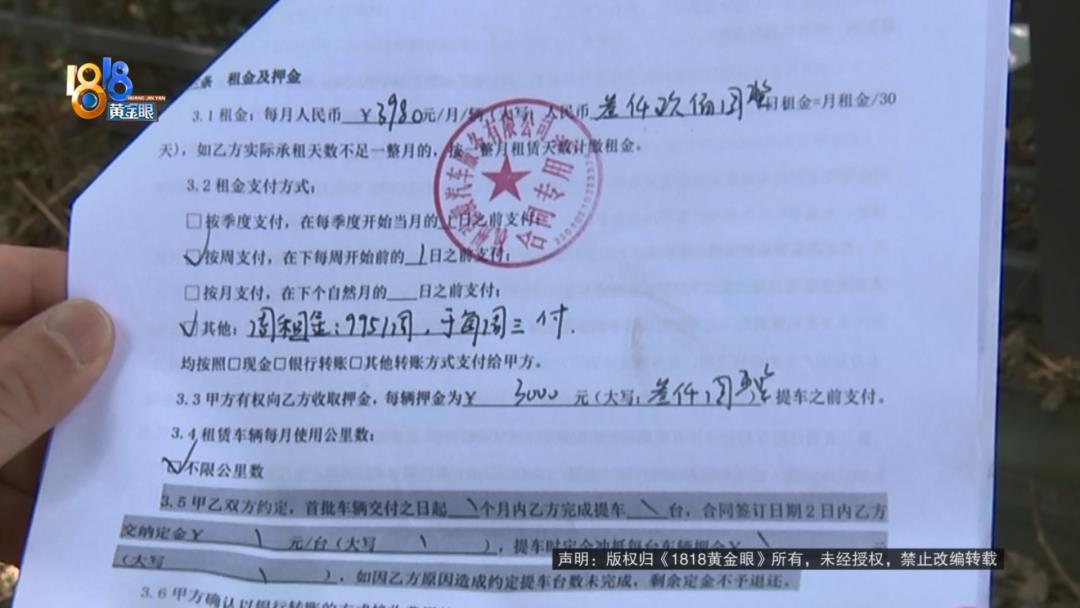 1818
HUANG JIN YAN
黄金眼
条 租金及押金
3.1 租金：每月人民币 ￥3980元/月/辆（大写：人民币 叁仟 佰 日租金=月租金/30
天），如乙方实际承租天数不足一整月的，按一整月租赁天数计缴租金。
3.2 租金支付方式：
□按季度支付，在每季度开始当月的 日之前支付；
☑按周支付，在下每周开始前的 1 日之前支付；
□按月支付，在下个自然月的 日之前支付；
☑其他：周租金：995/周，于每周三付.
均按照□现金□银行转账□其他转账方式支付给甲方。
3.3 甲方有权向乙方收取押金，每辆押金为￥ 3000 元（大写：叁仟 提车之前支付。
3.4 租赁车辆每月使用公里数：
☑不限公里数
3.5 甲乙双方约定，首批车辆交付之日起 \ 个月内乙方完成提车 \ 台，合同签订日期 2 日内乙方
交纳定金￥ \ 元/台（大写 \ ），提车时定金冲抵每台车辆押金￥ \ 元
（大写 \ ），如因乙方原因造成约定提车台数未完成，剩余定金不予退还；
3.6 甲方确认以银行转账的方式
汽车服务有限公司
合同专用
声明：版权归《1818黄金眼》所有，未经授权，禁止改编转载